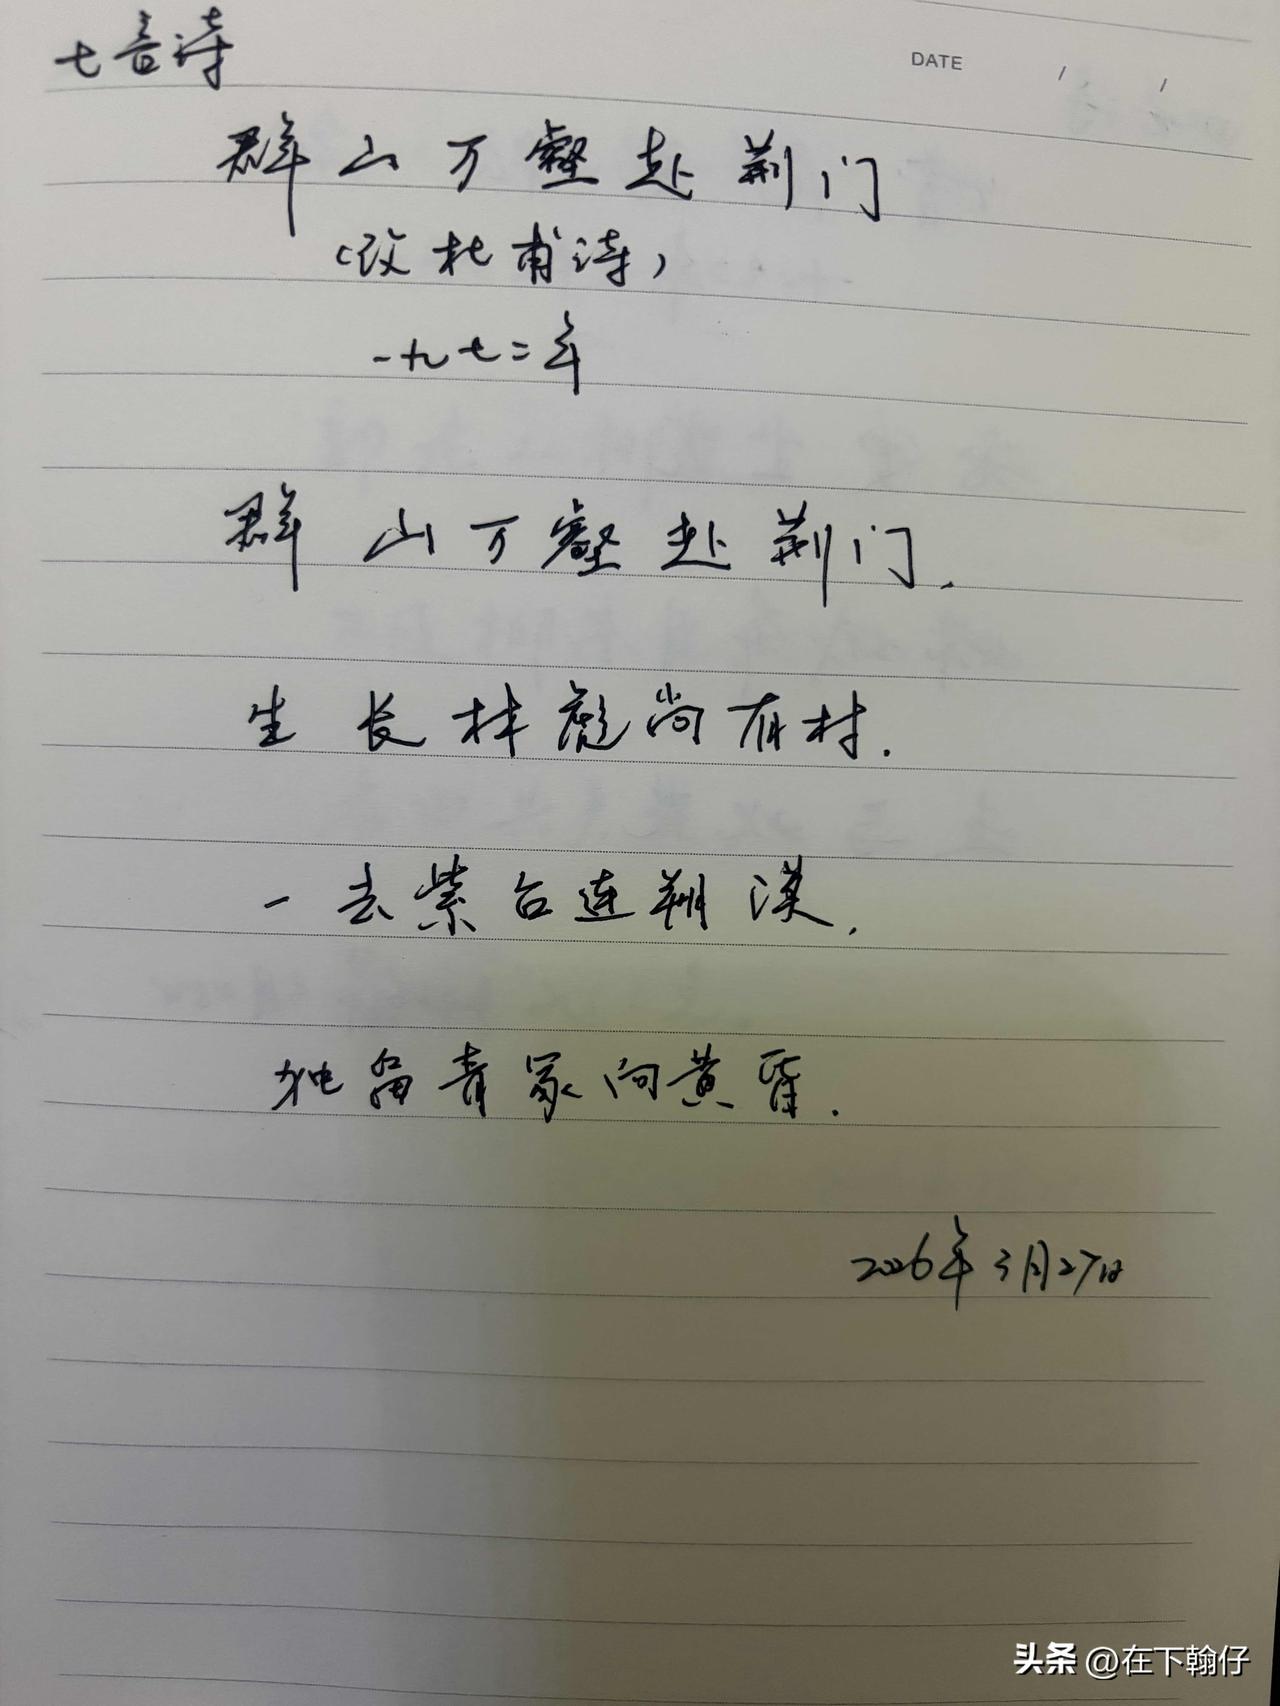 七言诗
DATE / /
群山万壑赴荆门
(改杜甫诗)
一九七二年
群山万壑赴荆门.
生长林彪尚有村.
一去紫台连朔漠.
独留青冢向黄昏.
2026年3月27日
头条 @在下翰仔